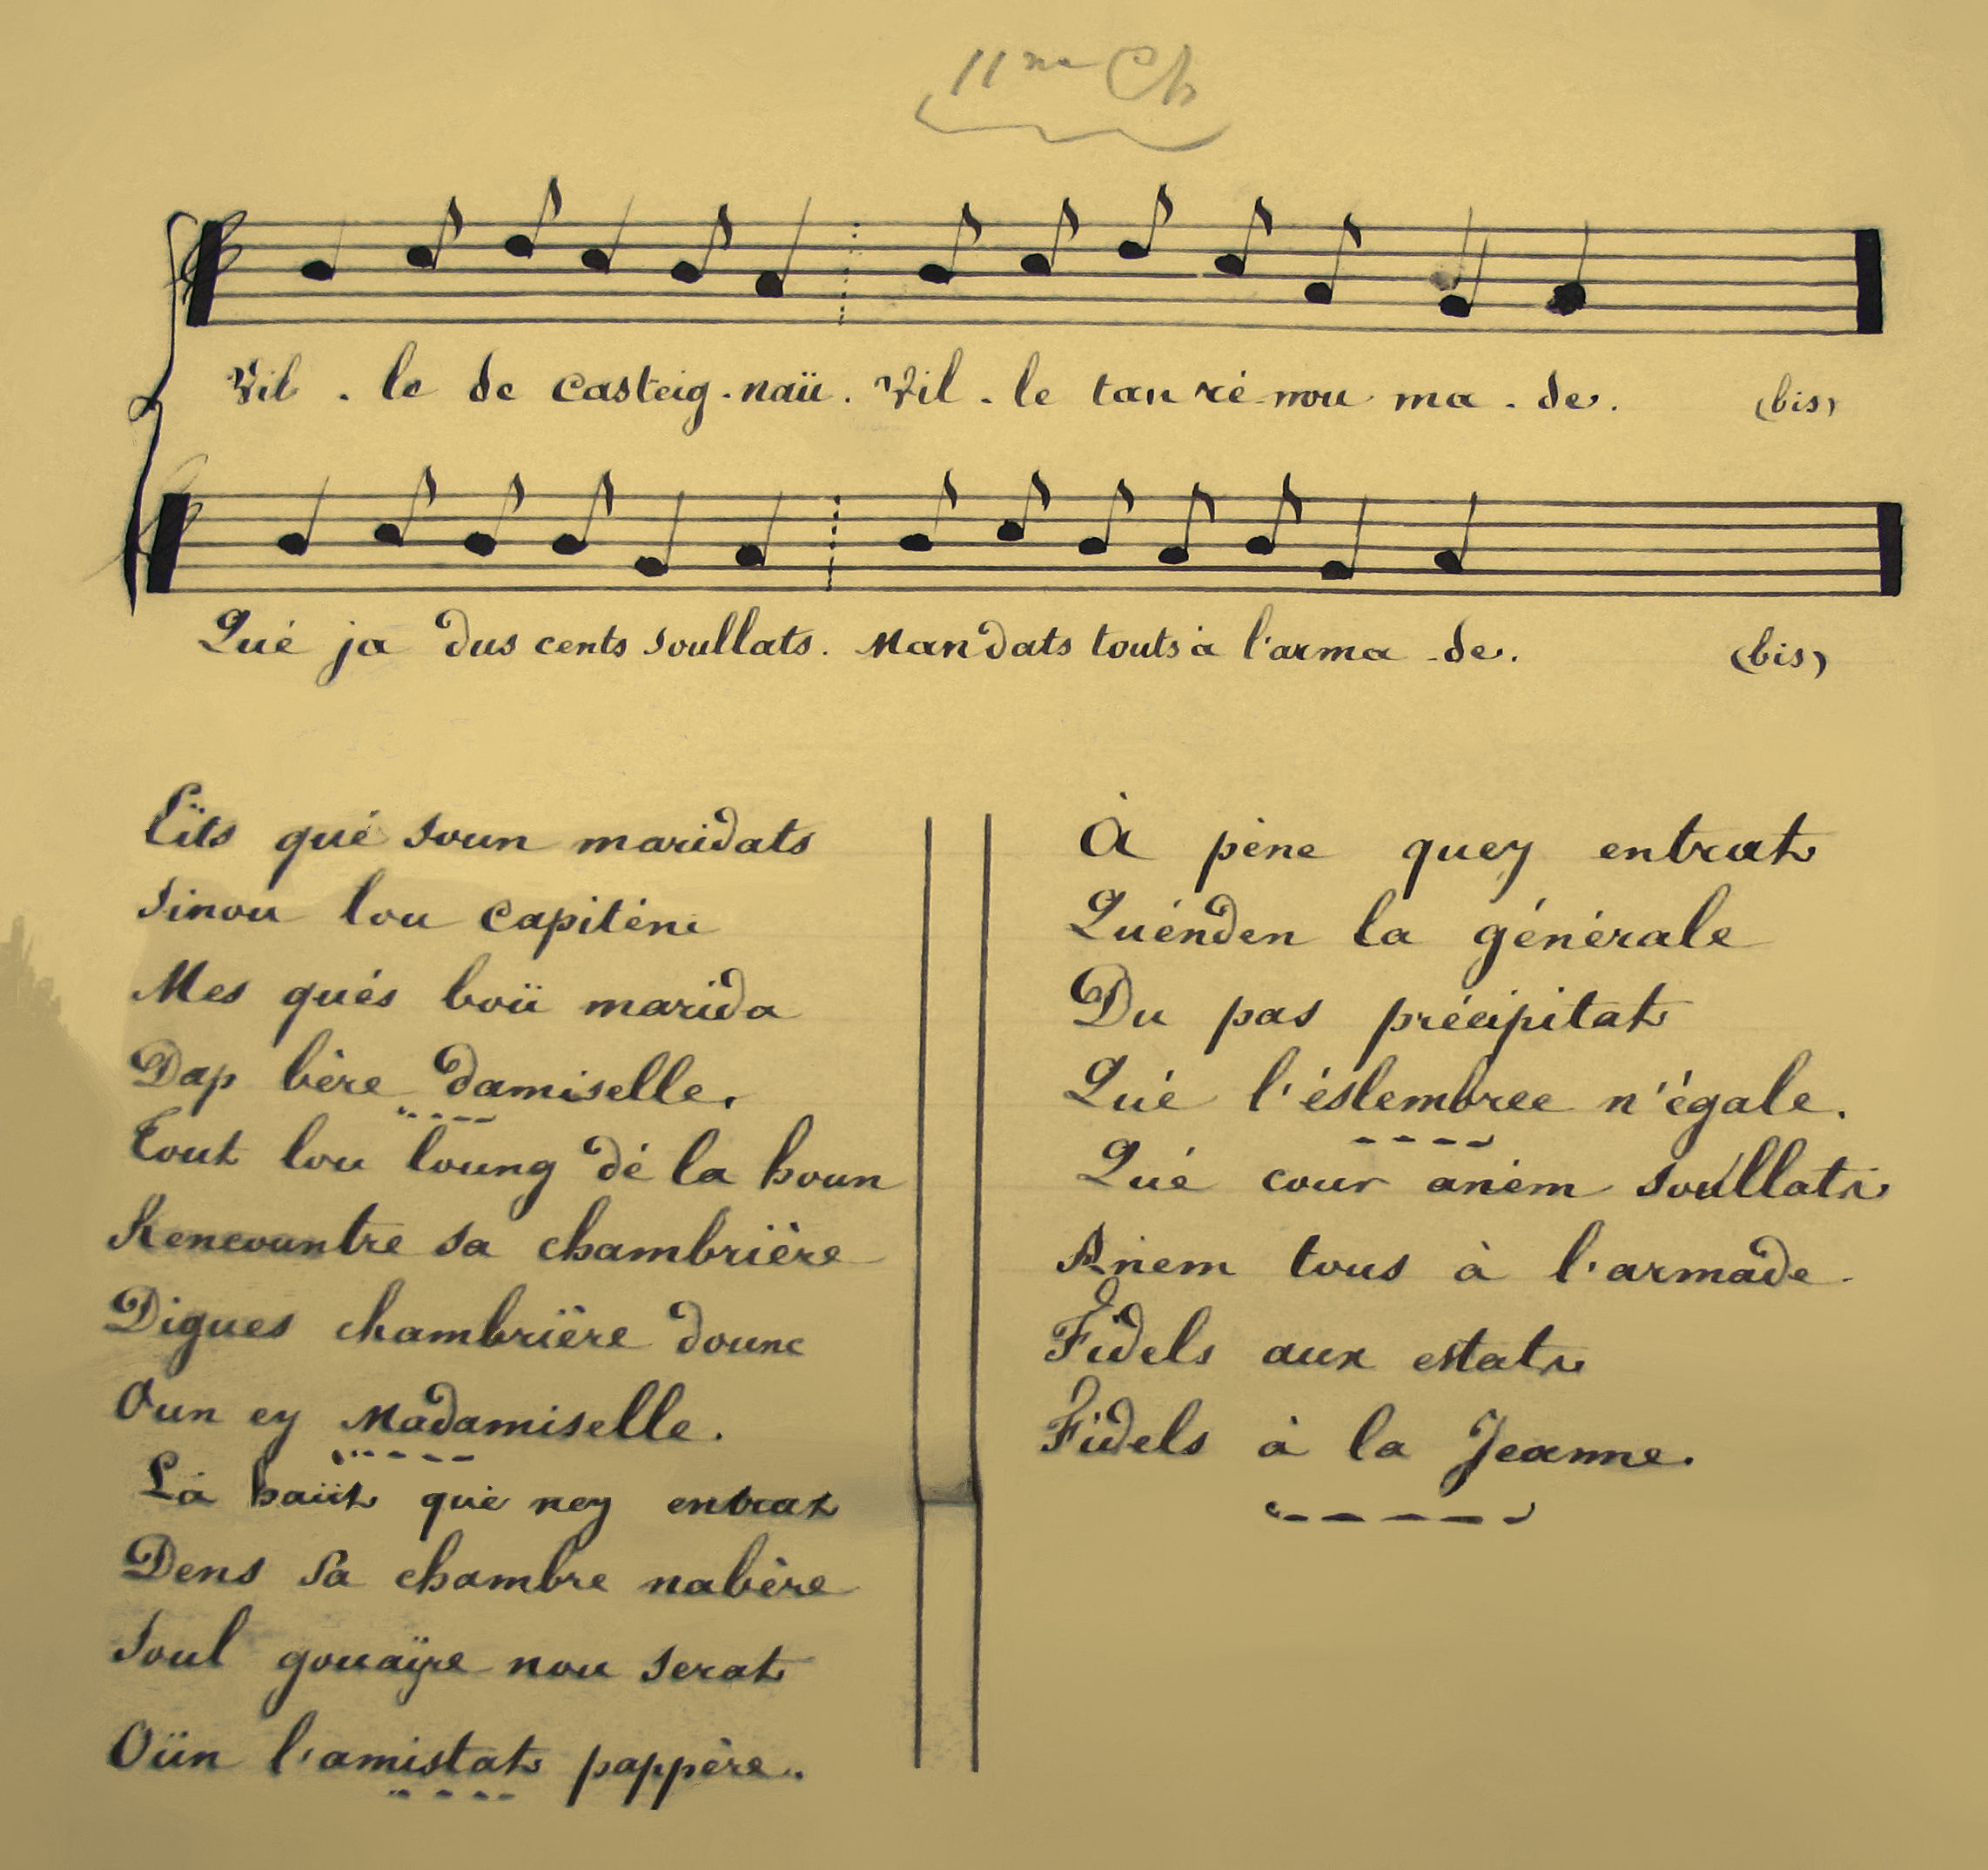 11me Ch
Vil . le de casteig . naü . Vil . le tan ré mou ma . de . (bis)
Qué ja dus cents soullats . Mandats touts à l'arma . de . (bis)
Eïts qué soun maridats
Sinou lou capiténe
Mes qués boü marida
Dap bère damiselle.
Tout lou loung dé la houn
Rencountre sa chambrière
Digues chambrière dounc
Oun ey Madamiselle.
Là haüt qué ney entrat
Dens sa chambre nabère
Soul gouaÿre nou serat
Oün l'amistat pappère.
À pène quey entrat
Quénden la générale
Du pas précipitat
Qué l'éslembree n'égale.
Qué cour aném soullats
Anem tous à l'armade
Fidels aux estats
Fidels à la Jeanne.